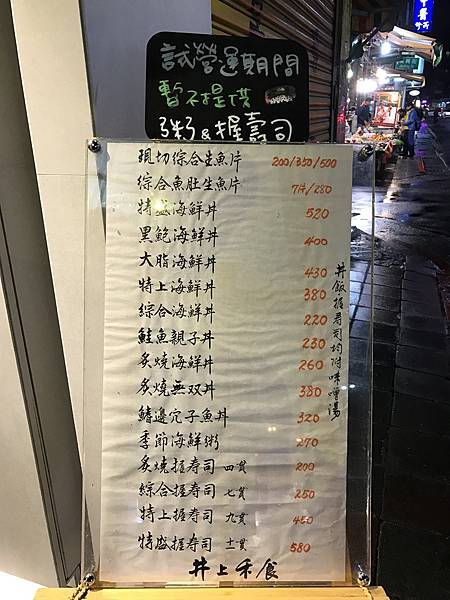 試營運期間
暫不提供
粥&握壽司
現切綜合生魚片 200/350/500
綜合魚肚生魚片 7片/280
特盛海鮮丼 520
黑鮑海鮮丼 400
大脂海鮮丼 430
特上海鮮丼 380
綜合海鮮丼 220
鮭魚親子丼 230
炙燒海鮮丼 260
炙燒無双丼 380
鰭邊穴子魚丼 320
季節海鮮粥 270
炙燒握寿司 四貫 200
綜合握寿司 七貫 250
特上握寿司 九貫 450
特盛握寿司 十一貫 580
丼飯握寿司均附味噌湯
丼上禾食